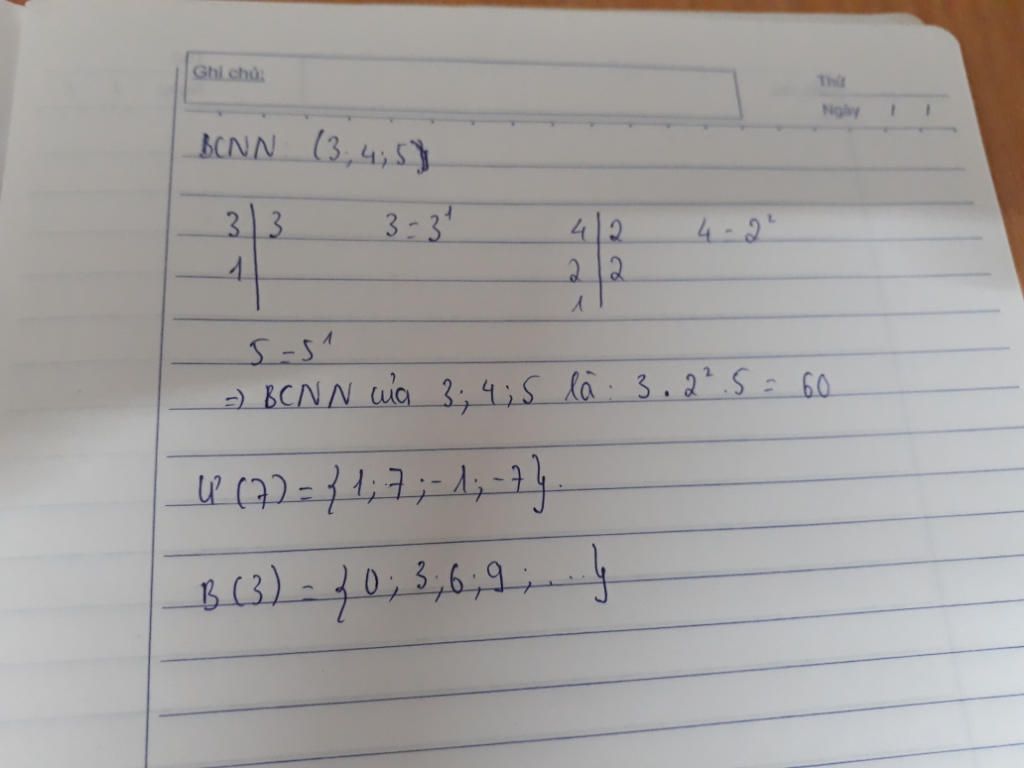 Ghi chú:
Thứ
Ngày / /
BCNN (3; 4; 5)
3 | 3 3 = 3¹ 4 | 2 4 = 2²
1 | 2 | 2
1
5 = 5¹
=> BCNN của 3; 4; 5 là: 3 . 2² . 5 = 60
Ư(7) = {1; 7; -1; -7}.
B(3) = {0; 3; 6; 9; ...}